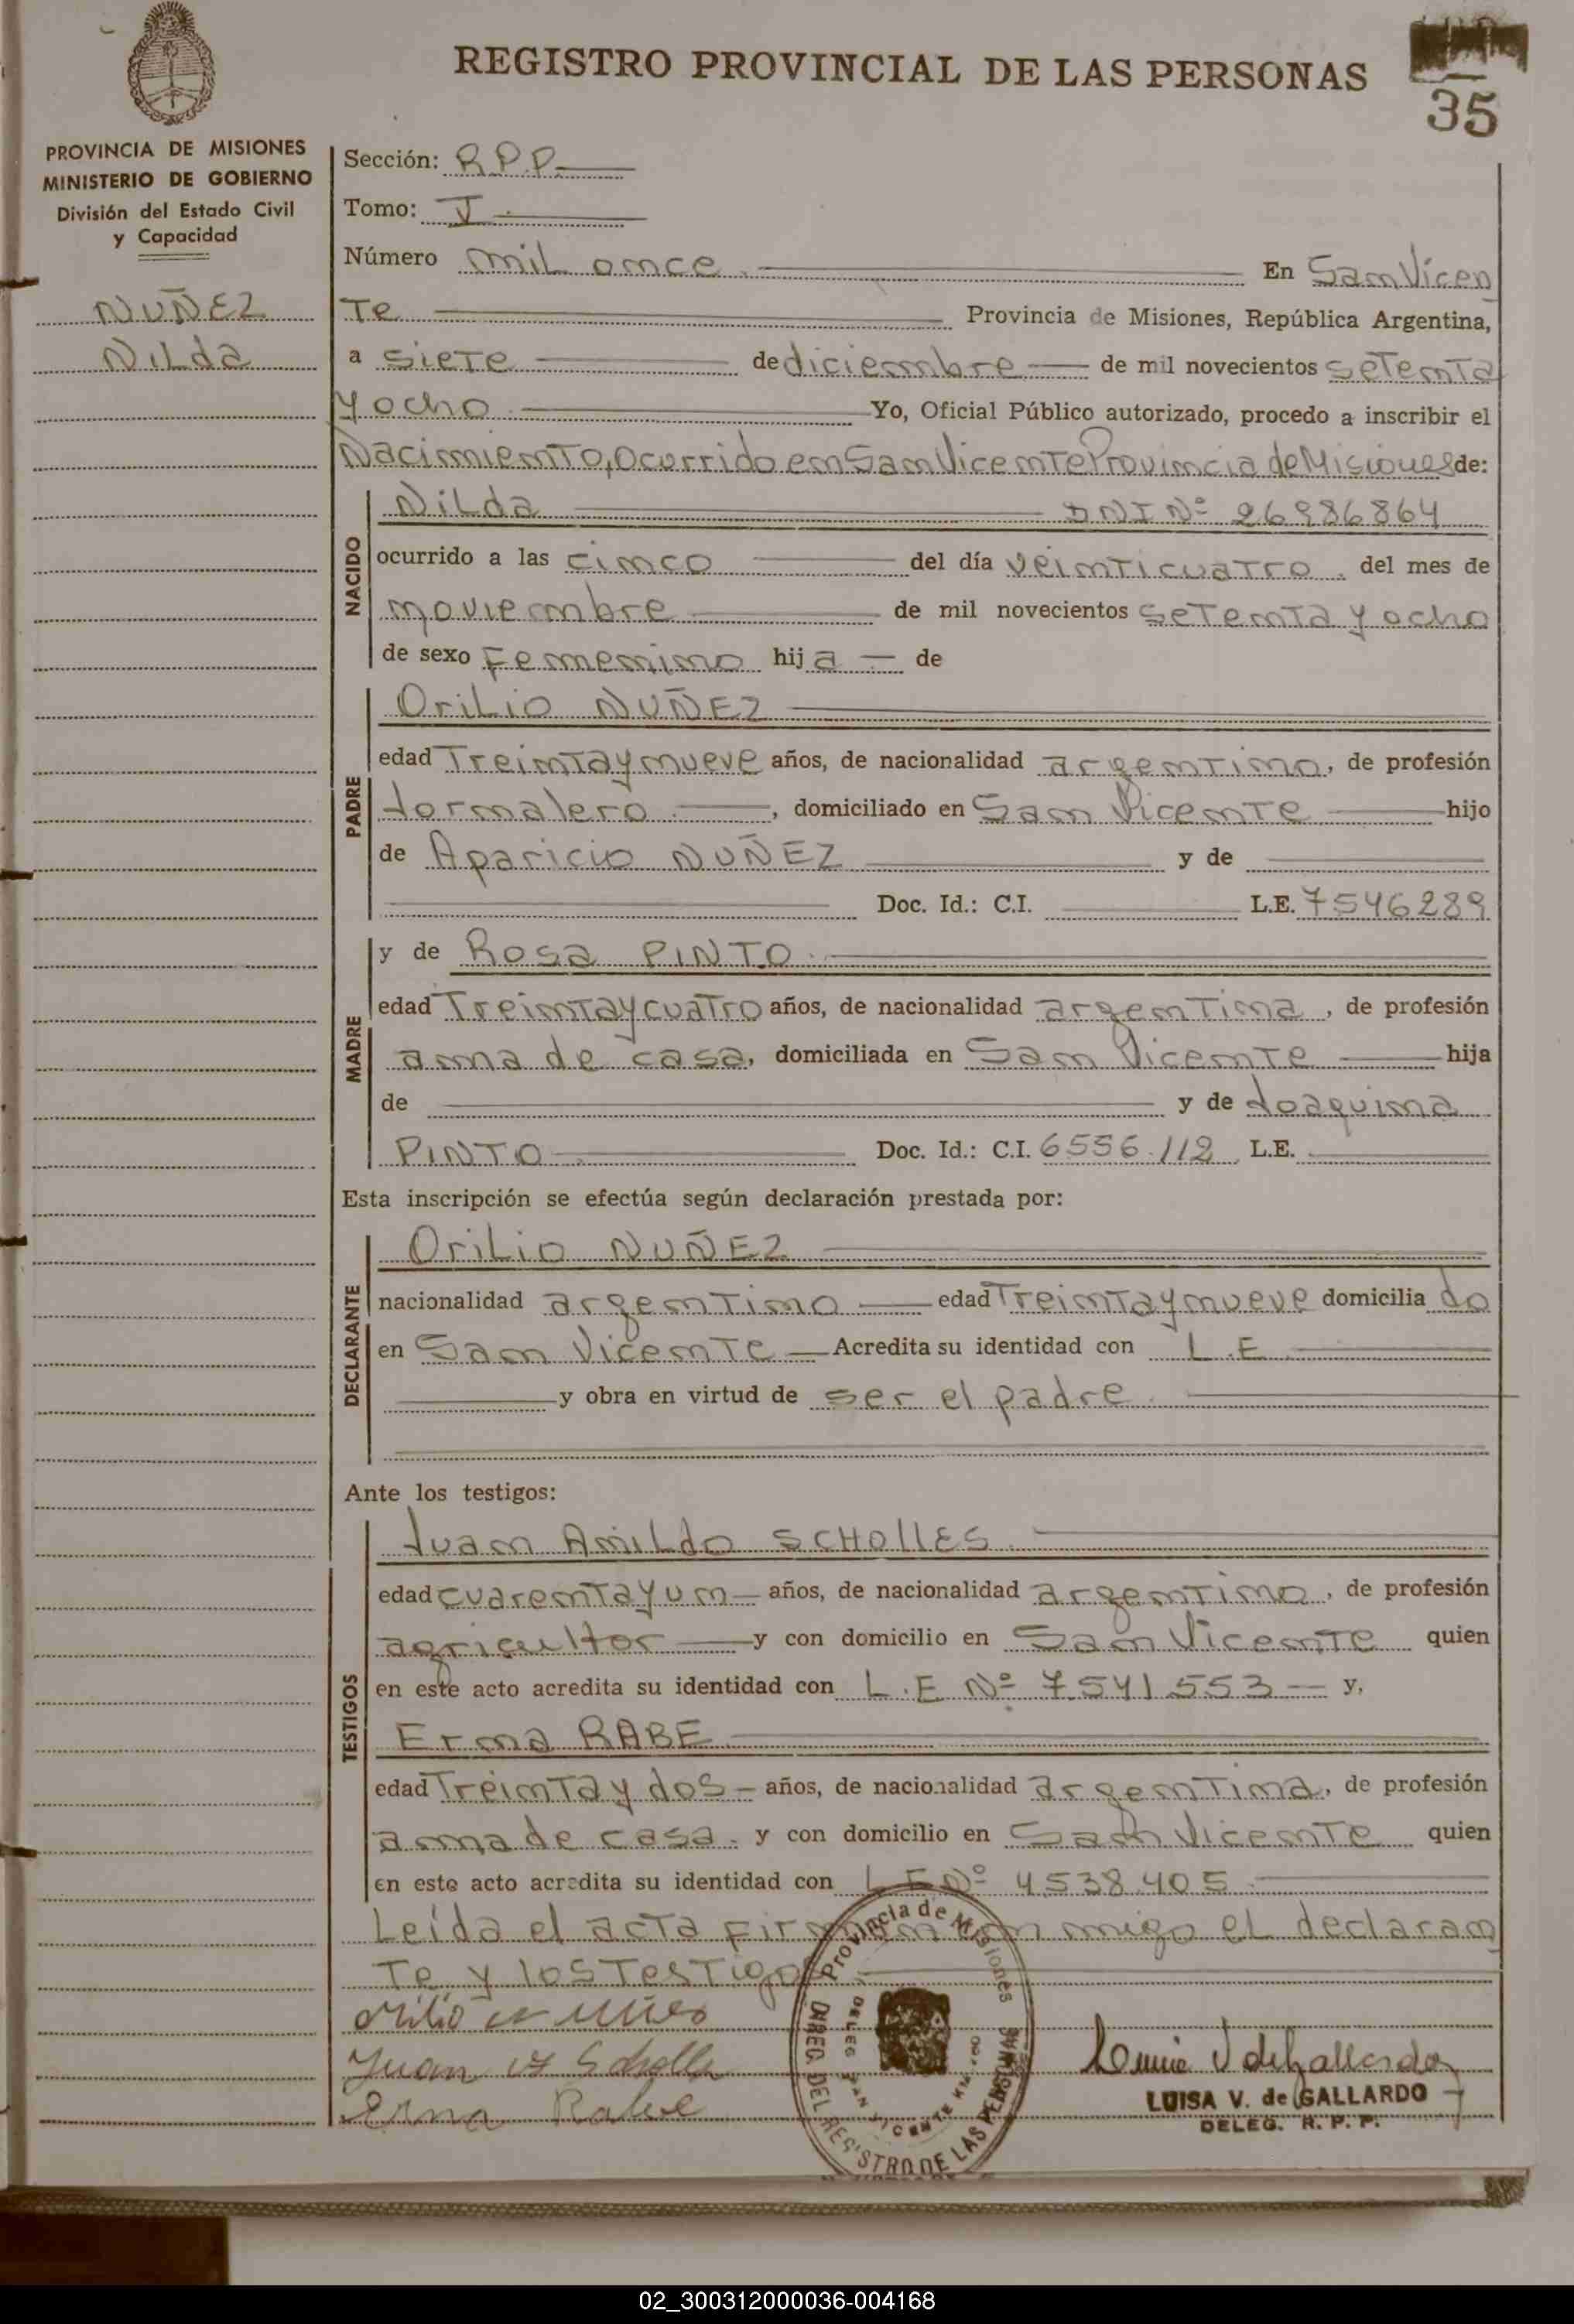 REGISTRO PROVINCIAL DE LAS PERSONAS
35
PROVINCIA DE MISIONES
MINISTERIO DE GOBIERNO
División del Estado Civil
y Capacidad
NUÑEZ
Nilda
Sección: R.P.P.
Tomo: I
Número mil once. En San Vicen
te Provincia de Misiones, República Argentina,
a siete de diciembre de mil novecientos setenta
y ocho Yo, Oficial Público autorizado, procedo a inscribir el
Nacimiento, Ocurrido en San Vicente Provincia de Misiones de:
NACIDO
Nilda DNI Nº 26986864
ocurrido a las cinco del día veinticuatro, del mes de
noviembre de mil novecientos setenta y ocho
de sexo Femenino hija de
PADRE
Orilio NUÑEZ
edad Treinta y nueve años, de nacionalidad argentino, de profesión
Jornalero, domiciliado en San Vicente hijo
de Aparicio NUÑEZ y de
Doc. Id.: C.I. L.E. 7546289
MADRE
y de Rosa PINTO
edad Treinta y cuatro años, de nacionalidad argentina, de profesión
ama de casa, domiciliada en San Vicente hija
de y de Joaquina
PINTO Doc. Id.: C.I. 6556.112 L.E.
Esta inscripción se efectúa según declaración prestada por:
DECLARANTE
Orilio NUÑEZ
nacionalidad argentino edad Treinta y nueve domiciliado
en San Vicente Acredita su identidad con L.E
y obra en virtud de ser el padre.
Ante los testigos:
TESTIGOS
Juan Anildo SCHOLLES
edad cuarenta y un años, de nacionalidad argentino, de profesión
agricultor y con domicilio en San Vicente quien
en este acto acredita su identidad con L.E Nº 7.541.553 y,
Erna RABE
edad Treinta y dos años, de nacionalidad argentina, de profesión
ama de casa. y con domicilio en San Vicente quien
en este acto acredita su identidad con L.E Nº 4.538.405
Leída el acta firman conmigo el declaran
te y los Testigos
Orilio Nuñes
Juan A Scholles
Erna Rabe
Provincia de Misiones
DIREC. DEL REGISTRO DE LAS PERSONAS
DELEG. SAN VICENTE KM.
LUISA V. de GALLARDO
DELEG. R. P. P.
02_300312000036-004168